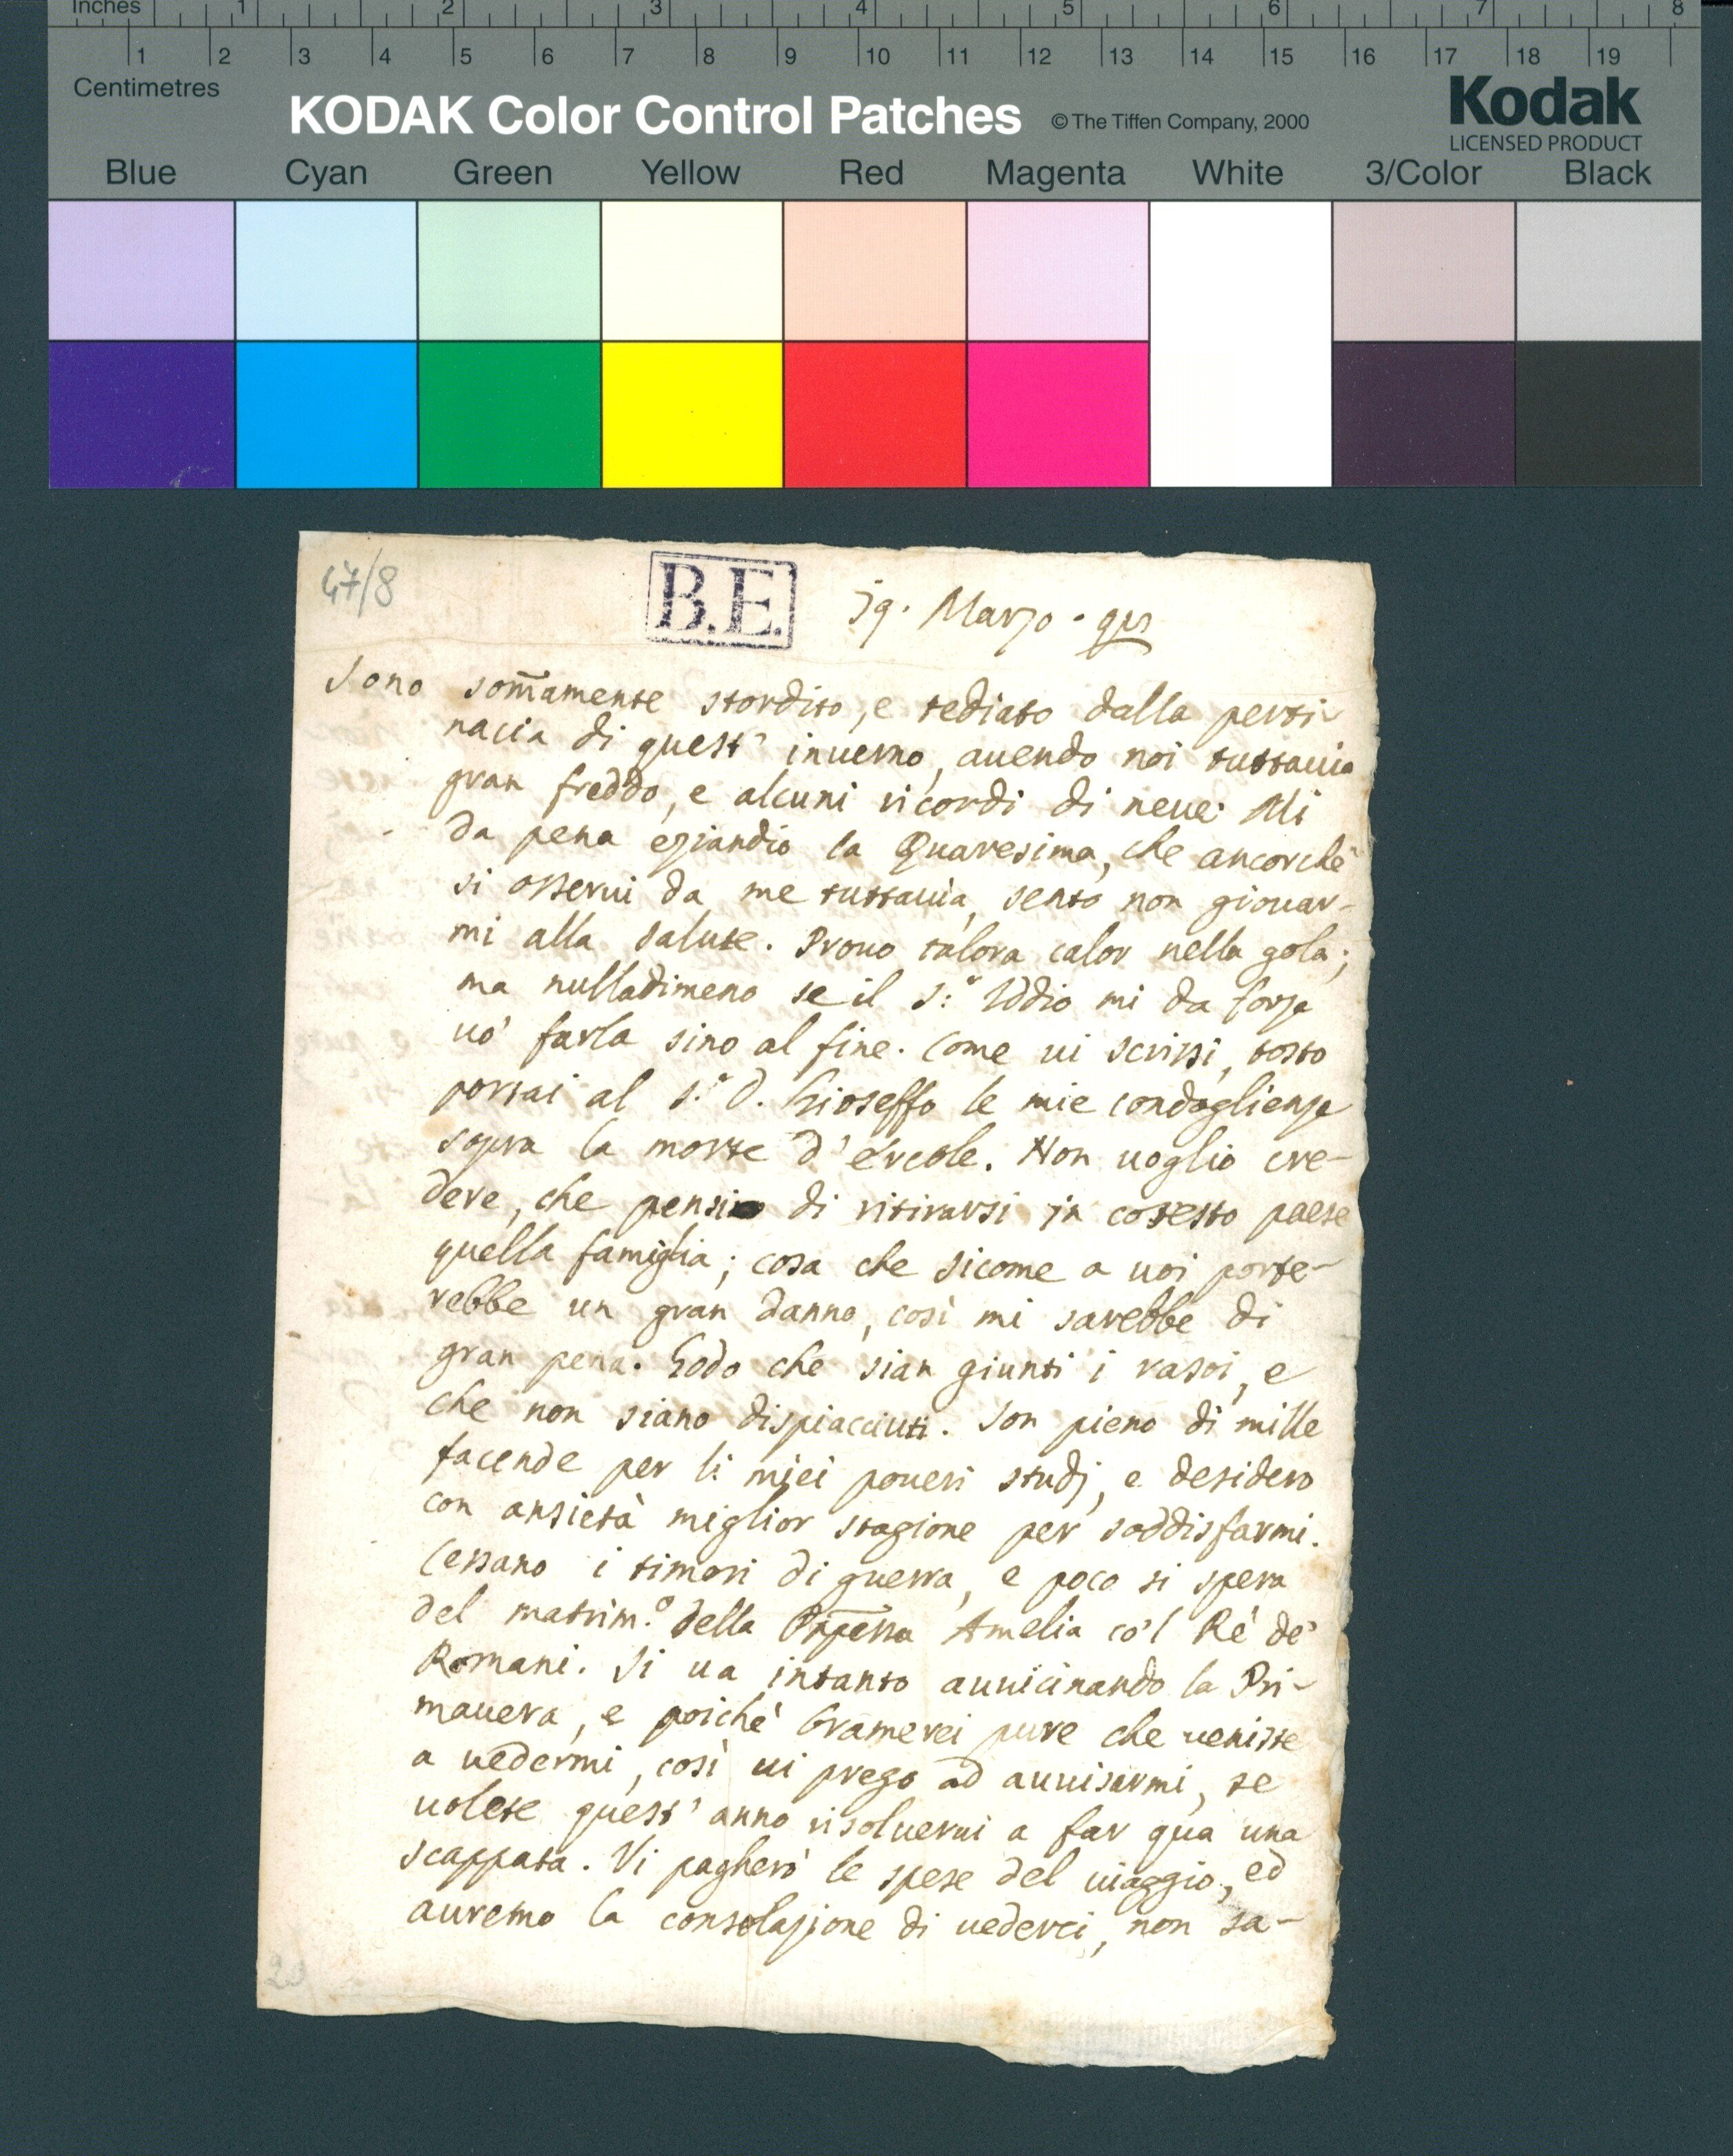 Inches 1 2 3 4 5 6 7 8
1 2 3 4 5 6 7 8 9 10 11 12 13 14 15 16 17 18 19
Centimetres
KODAK Color Control Patches © The Tiffen Company, 2000 Kodak
LICENSED PRODUCT
Blue Cyan Green Yellow Red Magenta White 3/Color Black
47/8
B.E.
Marzo
Sono som̄amente stordito, e tediato dalla perti-
nacia di quest' inuerno, auendo noi tuttauia
gran freddo, e alcuni ricordi di neue. Mi
da pena eziandio la Quaresima, che ancorchè
si osserui da me tuttauia, sento non giouar-
mi alla salute. Prouo talora calor nella gola;
ma nulladimeno se il S.r Iddio mi da forze
uo' farla sino al fine. Come ui scrissi, tosto
portai al S.r D. Gioseffo le mie condoglienze
sopra la morte d'ercole. Non uoglio cre-
dere, che pensi di ritirarsi in cotesto paese
quella famiglia; cosa che sicome a uoi porte-
rebbe un gran danno, così mi sarebbe di
gran pena. Godo che sian giunti i rasoi, e
che non siano dispiacciuti. Son pieno di mille
facende per li miei poueri studj, e desidero
con ansietà miglior stagione per soddisfarmi.
Cessano i timori di guerra, e poco si spera
del matrim.o della Amelia co'l Rè de'
Romani. Si ua intanto auuicinando la Pri-
mauera, e poichè bramerei pure che ueniste
a uedermi, così ui prego ad auuisarmi, se
uolete quest' anno risoluerui a far qua una
scappata. Vi pagherò le spese del uiaggio, ed
auremo la consolazione di uederci, non sa-